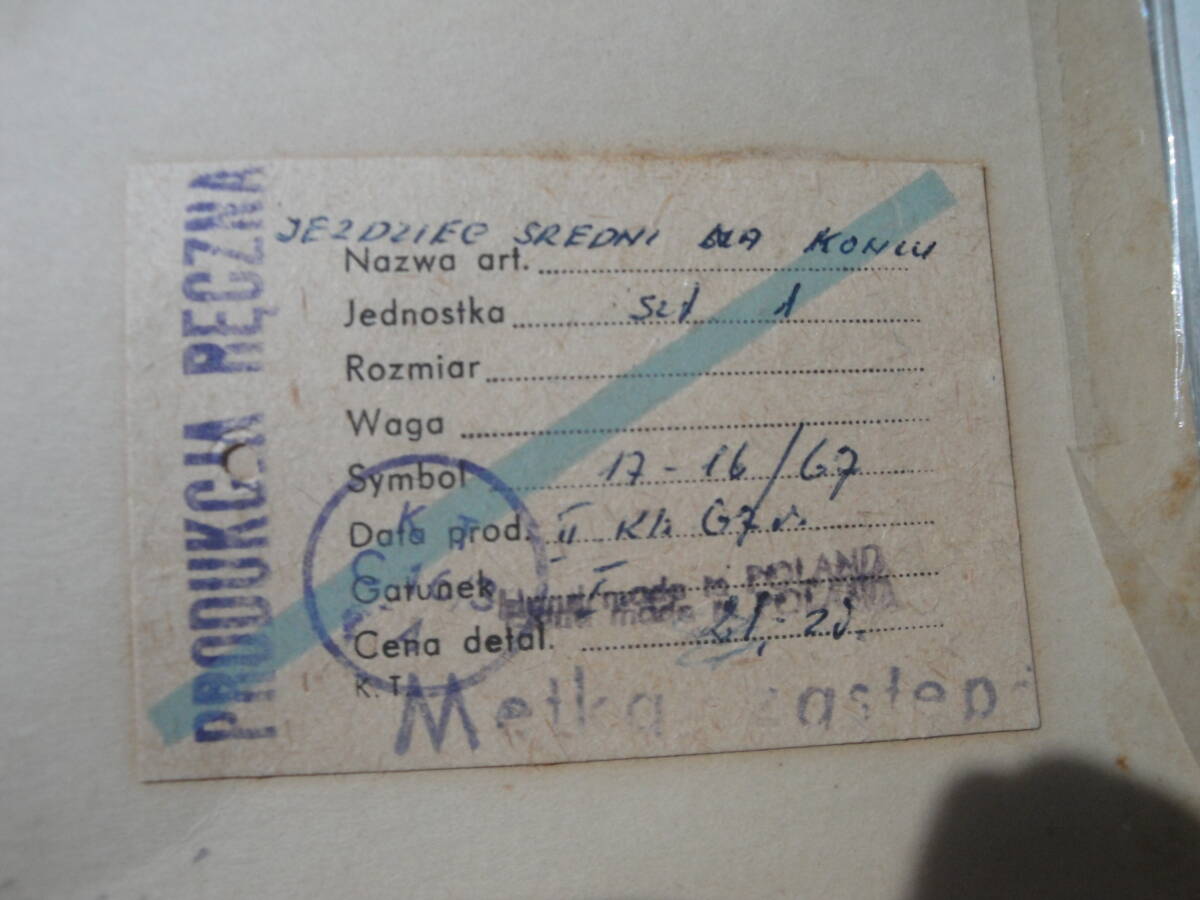 PRODUKCJA RĘCZNA
JEZDZIEC SREDNI NA KONIU
Nazwa art.
Jednostka szt 1
Rozmiar
Waga
Symbol 17-16/67
Data prod. II Kl. 67 r.
Gatunek I
Hand made in POLAND
Hand made in POLAND
Cena detal.
K.T.
K T
Metka zastęp